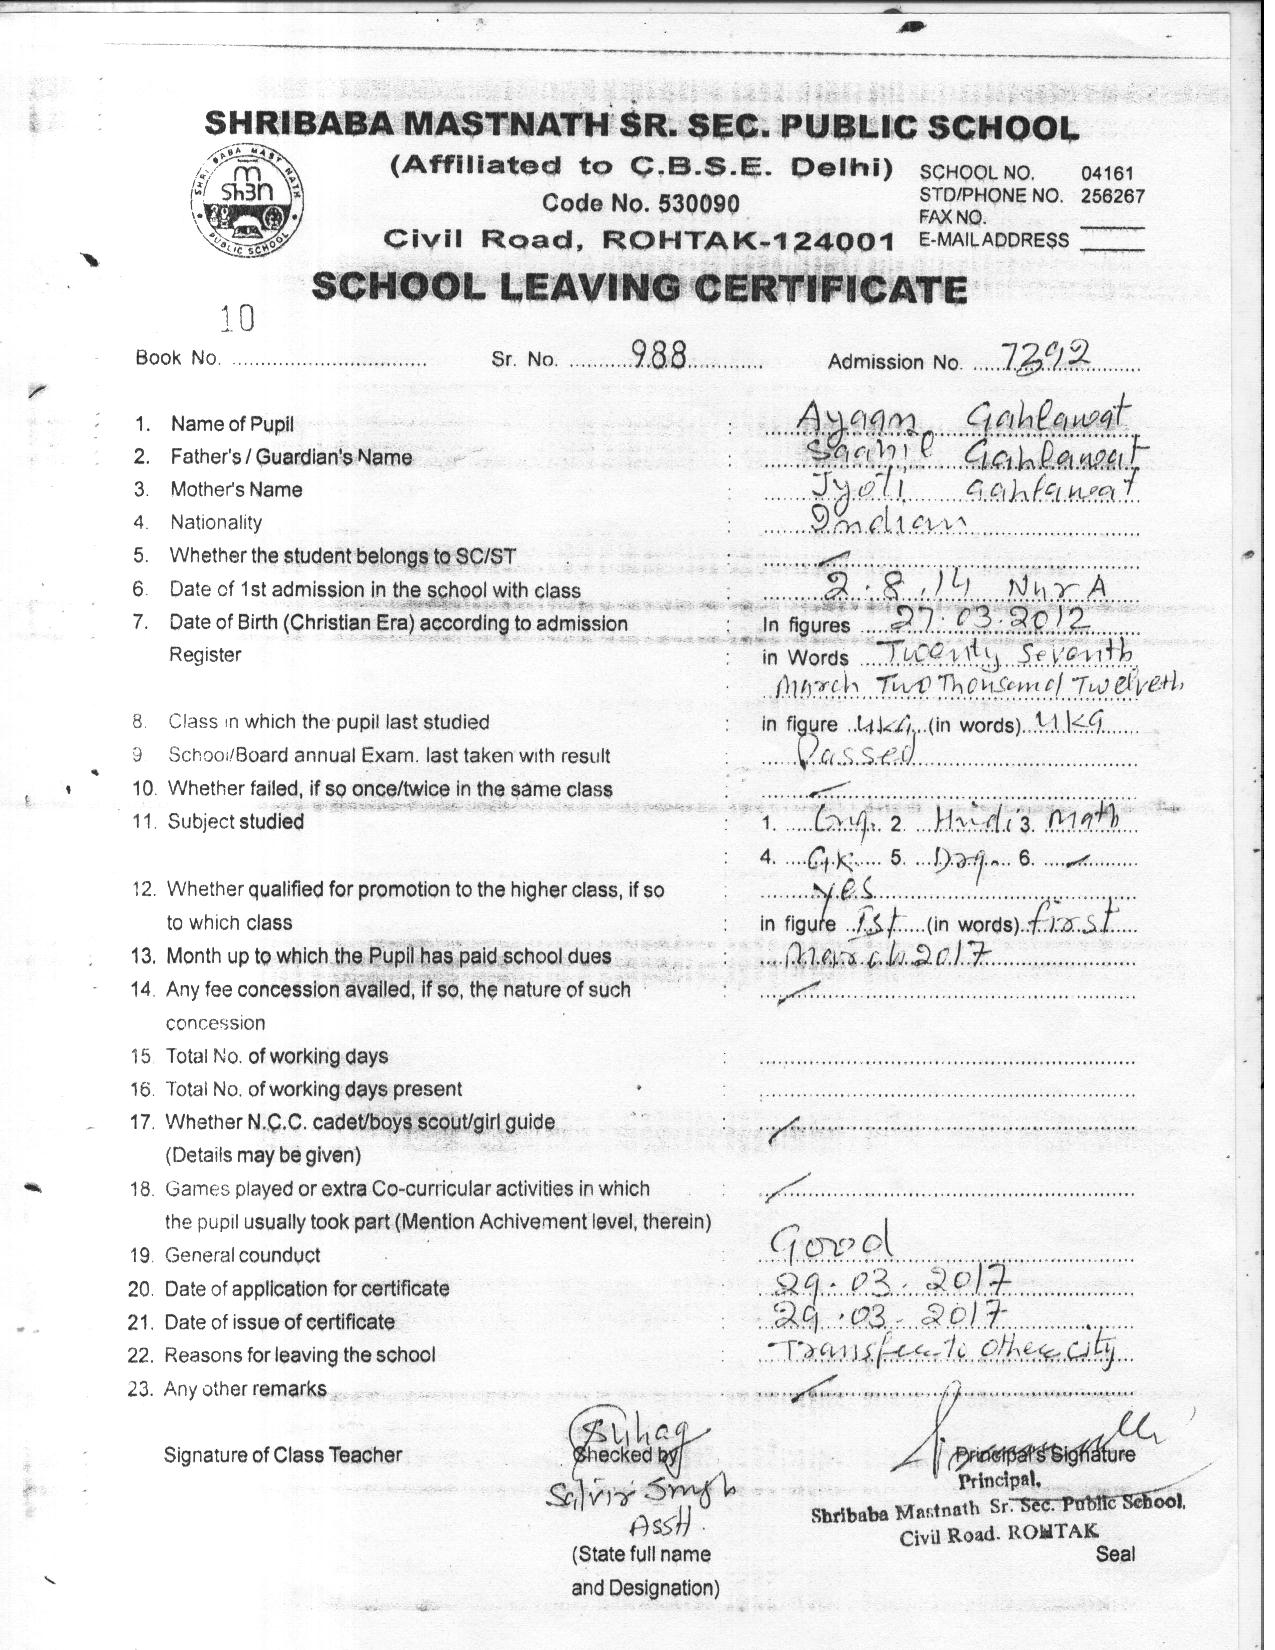 SHRIBABA MASTNATH SR. SEC. PUBLIC SCHOOL
(Affiliated to C.B.S.E. Delhi)
Code No. 530090
Civil Road, ROHTAK-124001
SCHOOL NO. 04161
STD/PHONE NO. 256267
FAX NO.
E-MAIL ADDRESS
SHRI BABA MAST NATH
Sh3n
PUBLIC SCHOOL
SCHOOL LEAVING CERTIFICATE
10
Book No. Sr. No. 988 Admission No. 7392
1. Name of Pupil : Ayaan Gahlawat
2. Father's / Guardian's Name : Saahil Gahlawat
3. Mother's Name : Jyoti Gahlawat
4. Nationality : Indian
5. Whether the student belongs to SC/ST :
6. Date of 1st admission in the school with class : 2.8.14 Nur A
7. Date of Birth (Christian Era) according to admission : In figures 27.03.2012
Register : in Words Twenty Seventh
: March Two Thousand Twelveth
8. Class in which the pupil last studied : in figure UKG (in words) UKG
9 School/Board annual Exam. last taken with result : Passed
10. Whether failed, if so once/twice in the same class :
11. Subject studied : 1. Eng. 2. Hindi 3. Math
: 4. G.K. 5. Drg. 6.
12. Whether qualified for promotion to the higher class, if so : yes
to which class : in figure Ist (in words) first
13. Month up to which the Pupil has paid school dues : March 2017
14. Any fee concession availed, if so, the nature of such :
concession
15. Total No. of working days :
16. Total No. of working days present :
17. Whether N.C.C. cadet/boys scout/girl guide :
(Details may be given)
18. Games played or extra Co-curricular activities in which :
the pupil usually took part (Mention Achivement level, therein)
19. General counduct : Good
20. Date of application for certificate : 29.03.2017
21. Date of issue of certificate : 29.03.2017
22. Reasons for leaving the school : Transfer to other city
23. Any other remarks :
Suhag
Signature of Class Teacher Checked by Principal's Signature
Singh
Principal,
Shribaba Mastnath Sr. Sec. Public School,
Civil Road. ROHTAK
(State full name Seal
and Designation)